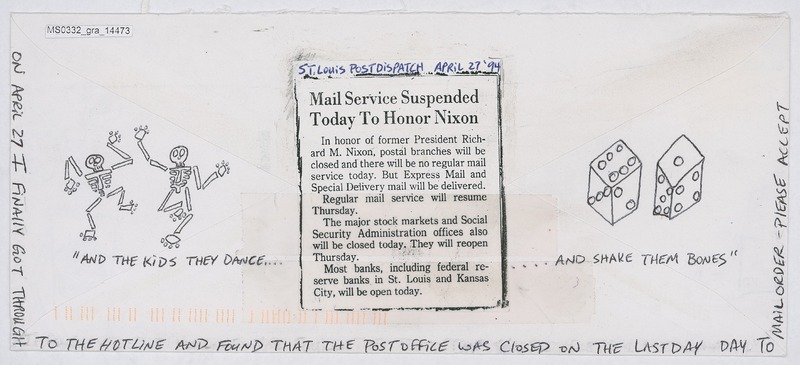 MS0332_gra_14473
ST. LOUIS POST DISPATCH APRIL 27 '94
Mail Service Suspended
Today To Honor Nixon
In honor of former President Rich-
ard M. Nixon, postal branches will be
closed and there will be no regular mail
service today. But Express Mail and
Special Delivery mail will be delivered.
Regular mail service will resume
Thursday.
The major stock markets and Social
Security Administration offices also
will be closed today. They will reopen
Thursday.
Most banks, including federal re-
serve banks in St. Louis and Kansas
City, will be open today.
"AND THE KIDS THEY DANCE....
..... AND SHAKE THEM BONES"
ON APRIL 27 I FINALLY GOT THROUGH
TO THE HOTLINE AND FOUND THAT THE POST OFFICE WAS CLOSED ON THE LAST DAY DAY TO
MAIL ORDER - PLEASE ACCEPT